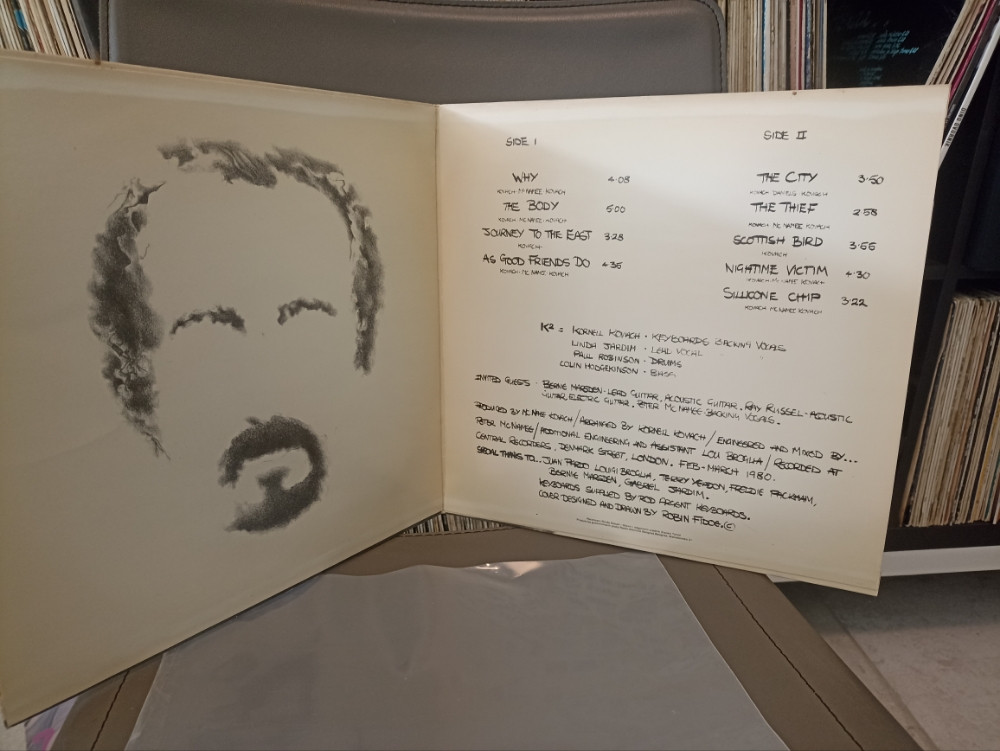 SIDE I
WHY 4·08
KOVACH·MCNAMEE·KOVACH
THE BODY 5·00
KOVACH·MCNAMEE·KOVACH
JOURNEY TO THE EAST 3·28
KOVACH
AS GOOD FRIENDS DO 4·36
KOVACH·MCNAMEE·KOVACH
SIDE II
THE CITY 3·50
THE THIEF 2·58
KOVACH MCNAMEE KOVACH
SCOTTISH BIRD 3·56
KOVACH
NIGHTIME VICTIM 4·30
KOVACH·MCNAMEE KOVACH
SILLICONE CHIP 3·22
KOVACH MCNAMEE KOVACH
K2 = KORNELL KOVACH · KEYBOARDS BACKING VOCALS
LINDA JARDIM · LEAD VOCAL
PAUL ROBINSON · DRUMS
COLIN HODGEKINSON · BASS
INVITED GUESTS · BERNIE MARSDEN·LEAD GUITAR, ACOUSTIC GUITAR. RAY RUSSEL·ACOUSTIC
GUITAR, ELECTRIC GUITAR. PETER MCNAMEE·BACKING VOCALS.
PRODUCED BY KOVACH/ARRANGED BY KORNELL KOVACH/ENGINEERED AND MIXED BY...
PETER MCNAMEE/ADDITIONAL ENGINEERING AND ASSISTANT LOU BROGLIA/RECORDED AT
CENTRAL RECORDERS, DENMARK STREET, LONDON. FEB-MARCH 1980.
SPECIAL THANKS TO... JUAN PARDO LOUIGI BROGLIA, TERRY YEADON, FREDDIE PACKHAM,
BERNIE MARSDEN, GABRIEL JARDIM.
KEYBOARDS SUPPLIED BY ROD ARGENT KEYBOARDS.
COVER DESIGNED AND DRAWN BY ROBIN FIDOE.(C)